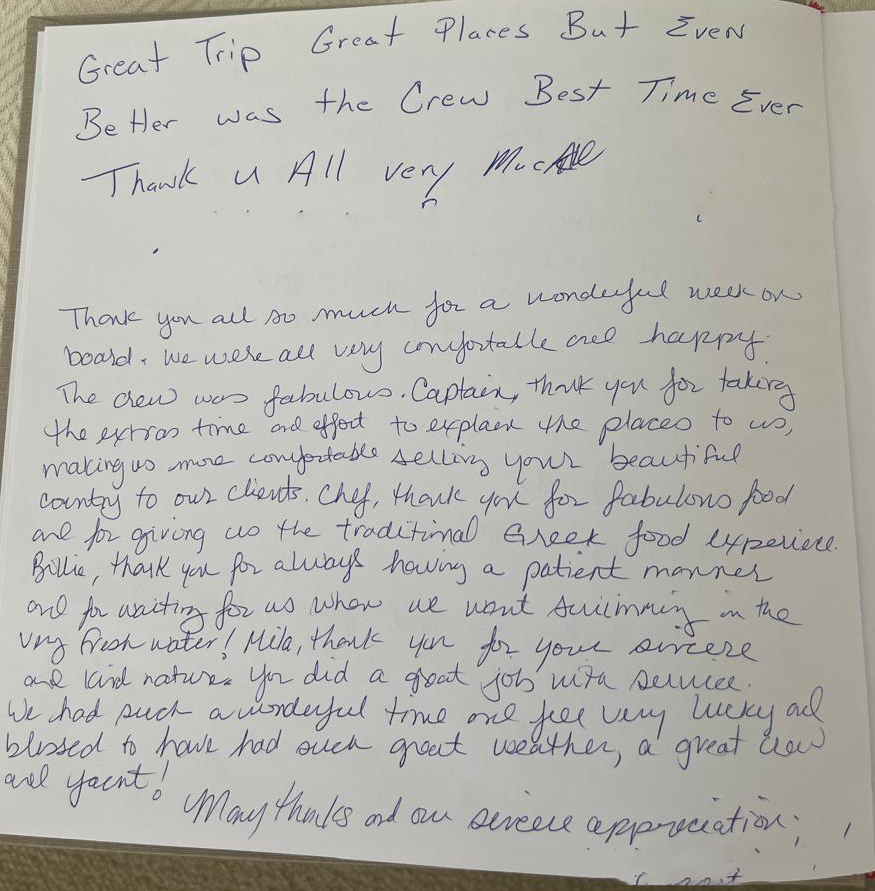 Great Trip Great Places But Even
Better was the Crew Best Time Ever
Thank u All very Much
Thank you all so much for a wonderful week on
board. We were all very comfortable and happy.
The crew was fabulous. Captain, thank you for taking
the extras time and effort to explain the places to us,
making us more comfortable selling your beautiful
country to our clients. Chef, thank you for fabulous food
and for giving us the traditional Greek food experience.
Billie, thank you for always having a patient manner
and for waiting for us when we went swimming in the
very fresh water! Mila, thank you for your sincere
and kind nature. You did a great job with service.
We had such a wonderful time and feel very lucky and
blessed to have had such great weather, a great crew
and yacht!
Many thanks and our sincere appreciation,